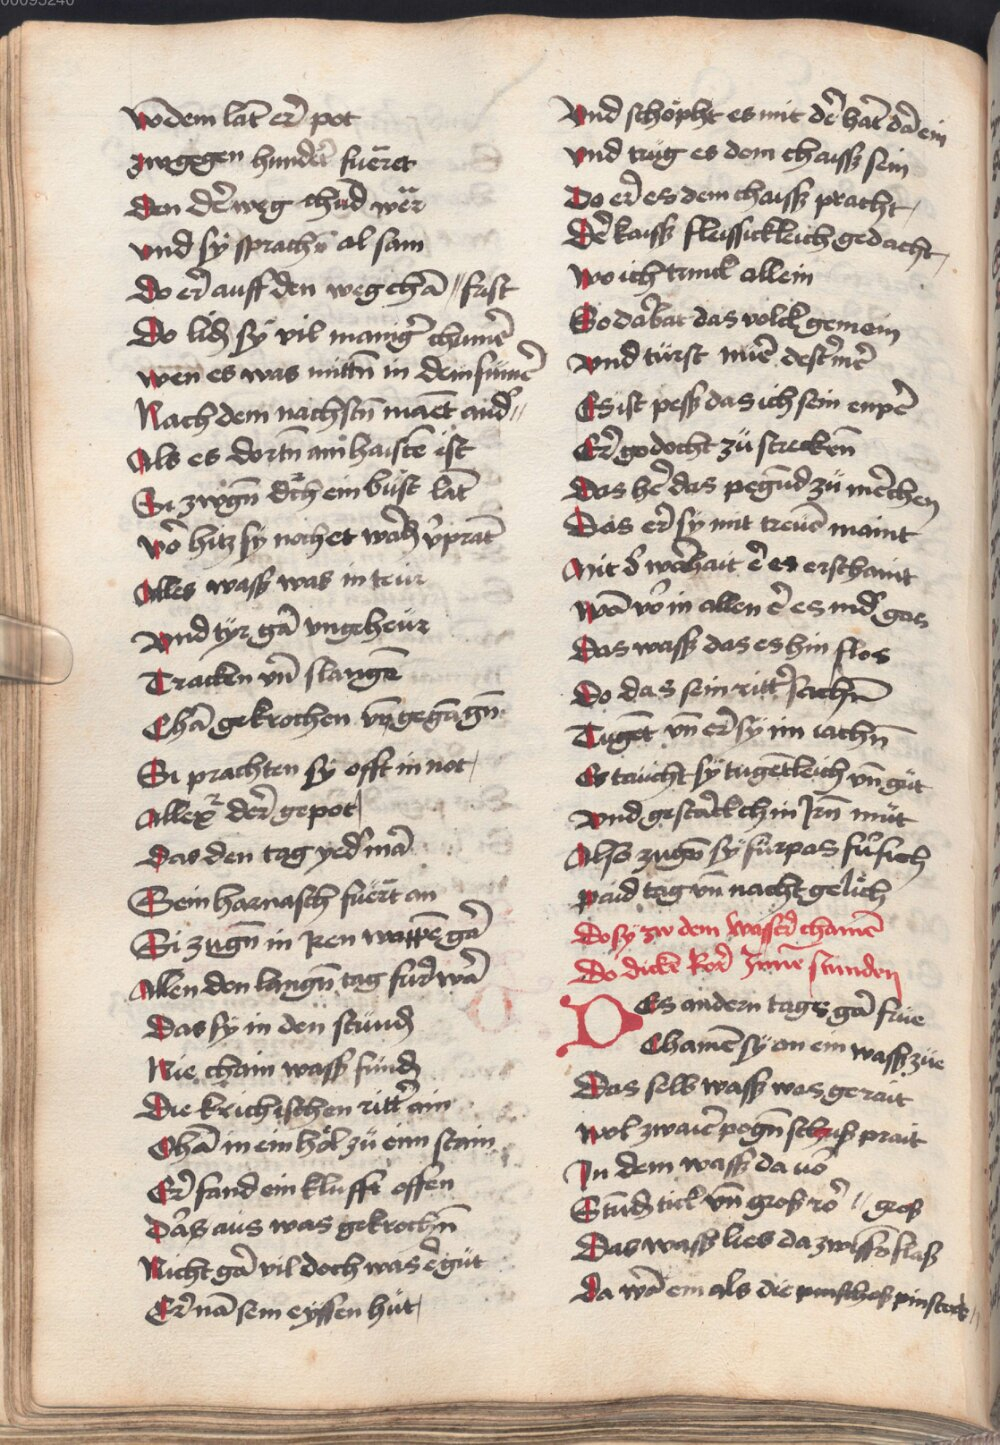 00095240
Vodem lāt er pot
zwgegen hundert fuēret
den der weg chūd wër
vnd sy sprachn al sam
Do er auff den weg chā // frist
Do lidn sy vil manigr chumēr
wen es was mittn in dem sumēr
Nach dem nachstn maēt and //
Als es dortn am haistē ist
Si zwgn dch ein wüst lāt
võ hitz sy nochet warn vprāt
Alles wass was in teür
Vnd tyr gar vngeheür
Tracken vn slangē
Chā gekrochen vn gegāgn
Si prachten sy offt in not
Allexr der gepot
Das den tag yedmā
Sein harnasch fuērt an
Si zugn in Iren wappē gar
Allen den langn tag furwar
Das sy in den stundn
Nie chain wass fundn
Die krichischen rittr ain
Chā in ein höl zü einn stain
Er fand ein klufft offen
Dās aus was gekrochn
Nicht gar vil doch was er güt
Er nā sein eyssen hüt
Vnd schöpht es mit der hāt dar ein
vnd trüg es dem chaissr sein
Do er es dem chaissr pracht
Der kaissr fleissickleich gedacht
Wo ich trinck allein
So darbat das volck gemein
Vnd türst mūē destmēr
Es ist pessr das ich sein enpēr
Er gedocht zü streckēn
Das her das pegūd zü mērchen
Das er sy mit treuē maint
Mit d warhait er es erschaint
Wā vor in allen er es nidr gos
Das wassr das es hin flos
Do das sein rittr sachn
Tugēt vn er sy im iachn
Es taücht sy tugētleich vn güt
Vnd gestarckch in Irn müt
Also zugn sy fürpas fur sich
paid tag vn nacht geleich
Do sy zw dem Wasser chamē
Do dicke Ror Innē stunden
Des andern tages gar früe
Chamē sy an ein wassr züe
Das selb wassr was gerait
wol zwaier pogn schuss prait
In dem wassr da uō
Stūdn tick vn gros rōr // gros
Das wassr lies da zwissn flass
Da warn em als die pinstock